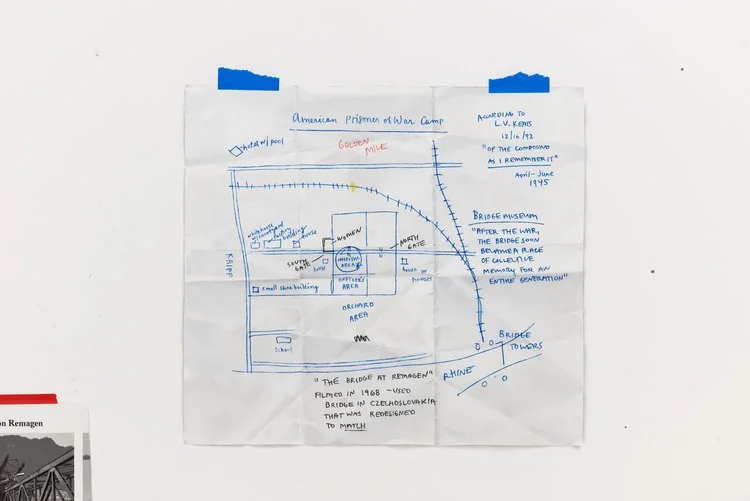 American Prisoner of War Camp
ACCORDING TO
L.V. KEATS
12/16/92
"OF THE COMPOUND
AS I REMEMBER IT"
April - June
1945
GOLDEN
MILE
hotel w/ pool
BRIDGE MUSEUM
"AFTER THE WAR,
THE BRIDGE SOON
BECAME A PLACE
OF COLLECTIVE
MEMORY FOR AN
ENTIRE GENERATION"
white house
factory
building
house
WOMEN
NORTH
GATE
SOUTH
GATE
house
AREA
OFFICER'S
AREA
house
KRIPP
small shoe building
ORCHARD
AREA
School
BRIDGE
TOWERS
RHINE
"THE BRIDGE AT REMAGEN"
FILMED IN 1968 - USED
BRIDGE IN CZELHOSLOVAKIA
THAT WAS REDESIGNED
TO MATCH
on Remagen